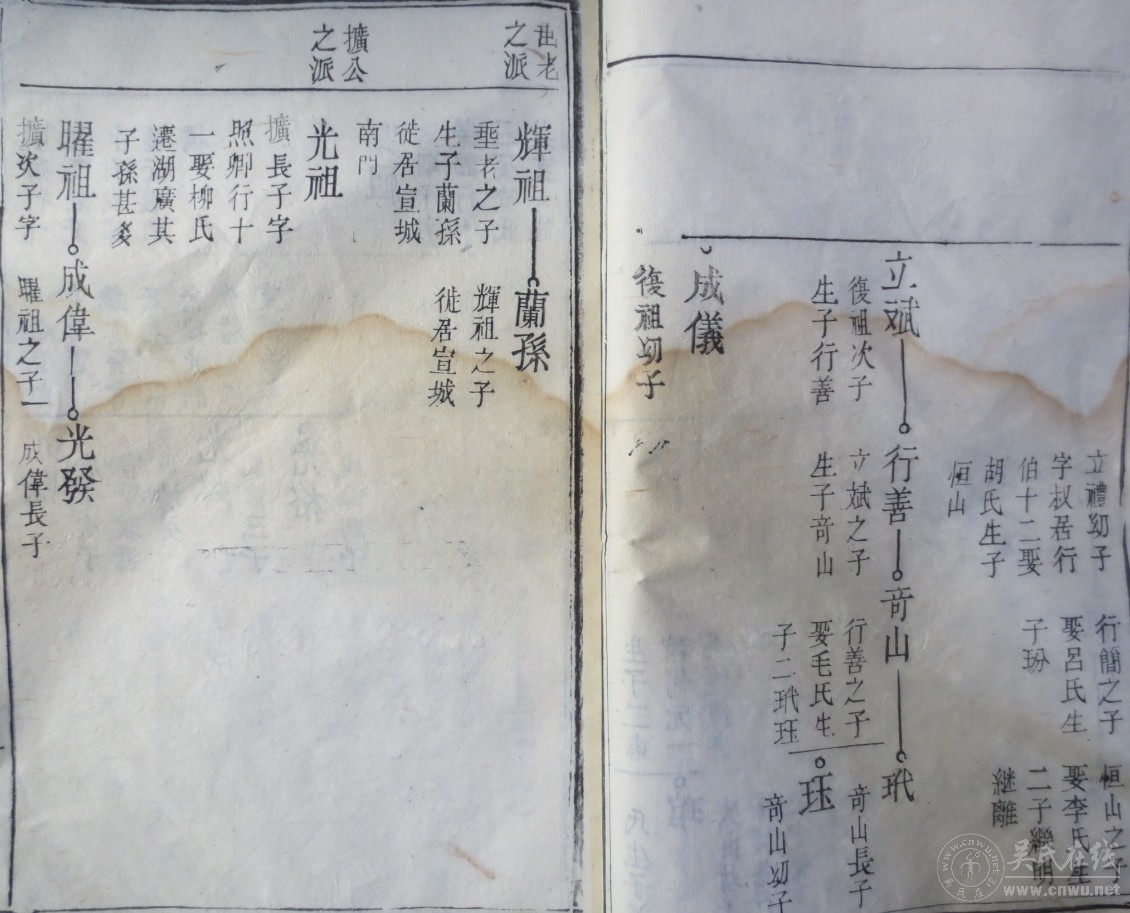 立禮幼子
字叔居行
伯十二娶
胡氏生子
恒山
行簡之子
娶呂氏生
子玢
恒山之子
娶李氏生
二子繼明
継離
立斌
復祖次子
生子行善
行善
立斌之子
生子竒山
竒山
行善之子
娶毛氏生
子二玳珏
玳
竒山長子
珏
竒山幼子
成儀
復祖幼子
老
之派
輝祖
垂老之子
生子蘭孫
徙居宣城
南門
蘭孫
輝祖之子
徙居宣城
擴公
之派
光祖
擴長子字
照卿行十
一娶柳氏
遷湖廣其
子孫甚多
曜祖
擴次子字
成偉
曜祖之子一
光發
成偉長子
吴氏在线
www.cnwu.net